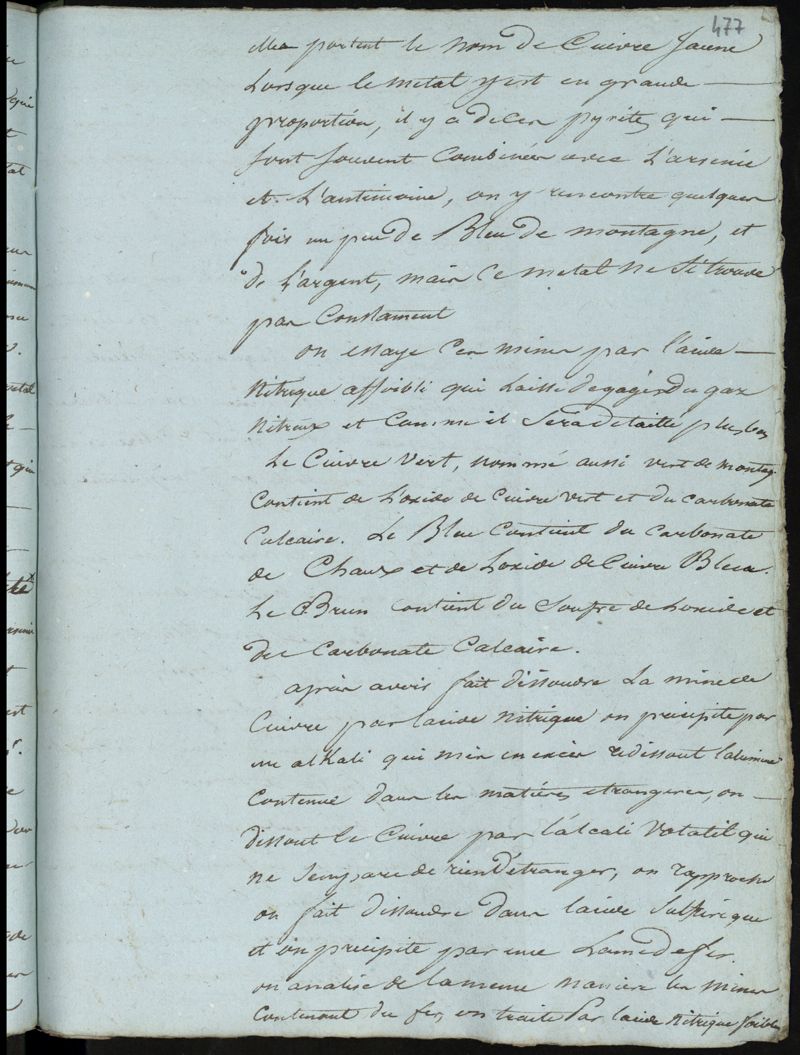 477
elles portent le nom de Cuivre Jaune
Lorsque le metal y est en grande
proportion, il y a de ces pyrites qui
sont souvent combinées avec L'arsenic
et L'antimoine, on y rencontre quelques
fois un peu de Bleu de montagne, et
de L'argent, mais ce metal ne s'i trouve
pas Constament
on essaye ces mines par l'acide
Nitrique affoibli qui Laisse degager du gaz
Nitreux et comme il sera detaillé plus bas
Le Cuivre Vert, nommé aussi vert de montag.
Contient de L'oxide de cuivre vert et du carbonate
Calcaire. Le Bleu Contient du Carbonate
de Chaux et de L'oxide de Cuivre Bleu.
Le Brun contient du Soufre de L'oxide et
du Carbonate Calcaire.
après avoir fait dissoudre La mine de
Cuivre par lacide Nitrique on precipite par
un alKali qui mis en excès redissout lalumine
Contenue dans les matières etrangeres, on
dissout le Cuivre par l'alcali Volatil qui
ne sempare de rien d'etranger, on rapproche
on fait dissoudre dans lacide Sulfurique
et on precipite par une Lame de fer.
on analise de la meme maniere les mines
Contenant du fer, on traite Par lacide Nitrique foible